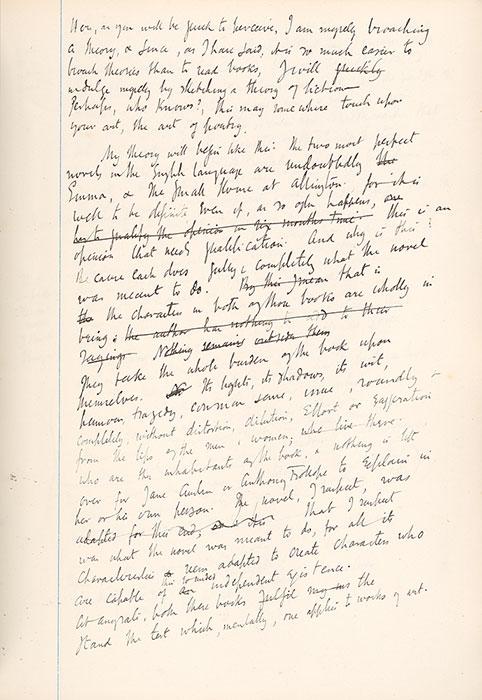 Here, as you will be quick to perceive, I am merely broaching
a theory, & since, as I have said, it is so much easier to
broach theories than to read books, I will quickly
indulge myself by sketching a theory of fiction
Perhaps, who knows?, this may somewhere touch upon
your art, the art of poetry.
My theory will begin like this: the two most perfect
novels in the English language are undoubtedly the
Emma, & The Small House at Allington. for it is
well to be definite even if, as so often happens, one
has to qualify the opinion in six months time. This is an
opinion that needs qualification. And why is this?
Because each does, fully & completely what the novel
was meant to do. By this I mean that is
the the characters in both of those books are wholly in
being; the author has nothing to add to their
sayings Nothing remains outside them
They take the whole burden of the book upon
themselves. Its lights, its shadows, its wit,
humour, tragedy, common sense, issue roundly &
completely, without distortion, dilution, effort or exaggeration
from the lips of the men & women who live there.
who are the inhabitants of the book, & nothing is left
over for Jane Austen or Anthony Trollope to explain in
her or his own person. The novel, I suspect, was
adapted for this end, that I suspect
was what the novel was meant to do, for all its
characteristics seem adapted to create characters who
are capable of independent existence.
At any rate, both these books fulfil the
stand the test which, mentally, one applies to works of art.